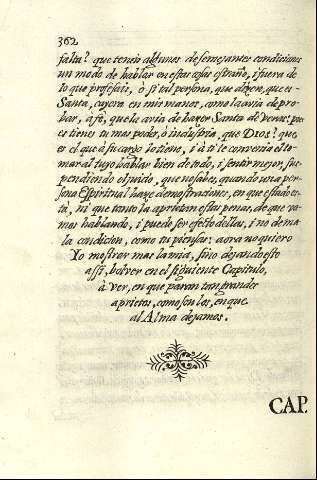 362
falta? que teneis algunos de semejantes condiciones
un modo de hablar en estas cosas estraño, i fuera de
lo que professais, ò si tal persona, que dizen, que es
Santa, cayera en mis manos, como la avia de pro-
bar, à fè, que la avia de hazer Santa de veras: pues
es tienes tu mas poder, ò industria, que Dios? que,
es el que à su cargo lo tiene, i à ti te convenia el to-
mar al tuyo hablar bien de todo, i sentir mejor, sus-
pendiendo el juizio, que no sabes, quando una per-
sona Espiritual haze demostraciones, en que estado es-
tà, ni que tanto la aprietan estas penas, de que va-
mos hablando, i puede ser efecto dellas, i no de ma-
la condicion, como tu piensas; aora no quiero
Yo mostrar mas la mia, sino dejando esto
assi, bolver en el siguiente Capitulo,
à ver, en que paran tan grandes
aprietos, como son los, en que
al Alma dejamos.
CAP.